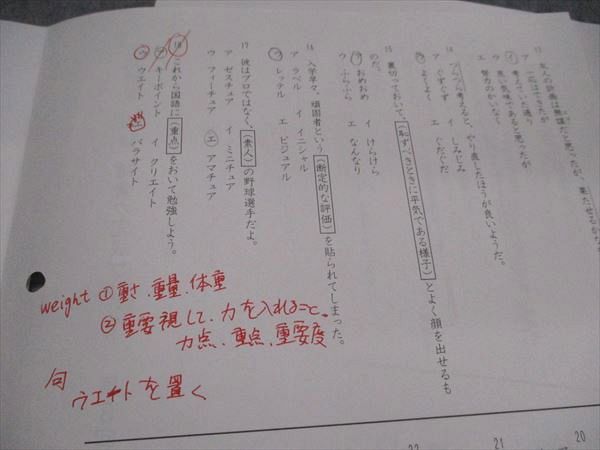 13 友人の計画は無謀だと思ったが、果たせるかな
ア 一応はできたが
イ 考えていた通り
ウ 悪い気味であると思ったが
エ 努力のかいなく
14 つらつら考えると、やり直したほうが良いようだ。
ア ぐずぐず イ しみじみ
ウ よくよく エ ぐだぐだ
15 裏切っておいて、(恥ずべきときに平気である様子)とよく顔を出せるも
のだ。
ア おめおめ イ けらけら
ウ ふらふら エ なんなり
16 入学早々、頑固者という(断定的な評価)を貼られてしまった。
ア ラベル イ イニシャル
ウ レッテル エ ビジュアル
17 彼はプロではなく、(素人)の野球選手だよ。
ア ゼスチュア イ ミニチュア
ウ フィーチュア エ アマチュア
18 これから国語に(重点)をおいて勉強しよう。
ア キーポイント イ クリエイト
ウ ウエイト エ パラサイト
weight ①重さ、重量、体重
②重要視して、力を入れること。
力点、重点、重要度
句
ウエートを置く
20
21
22